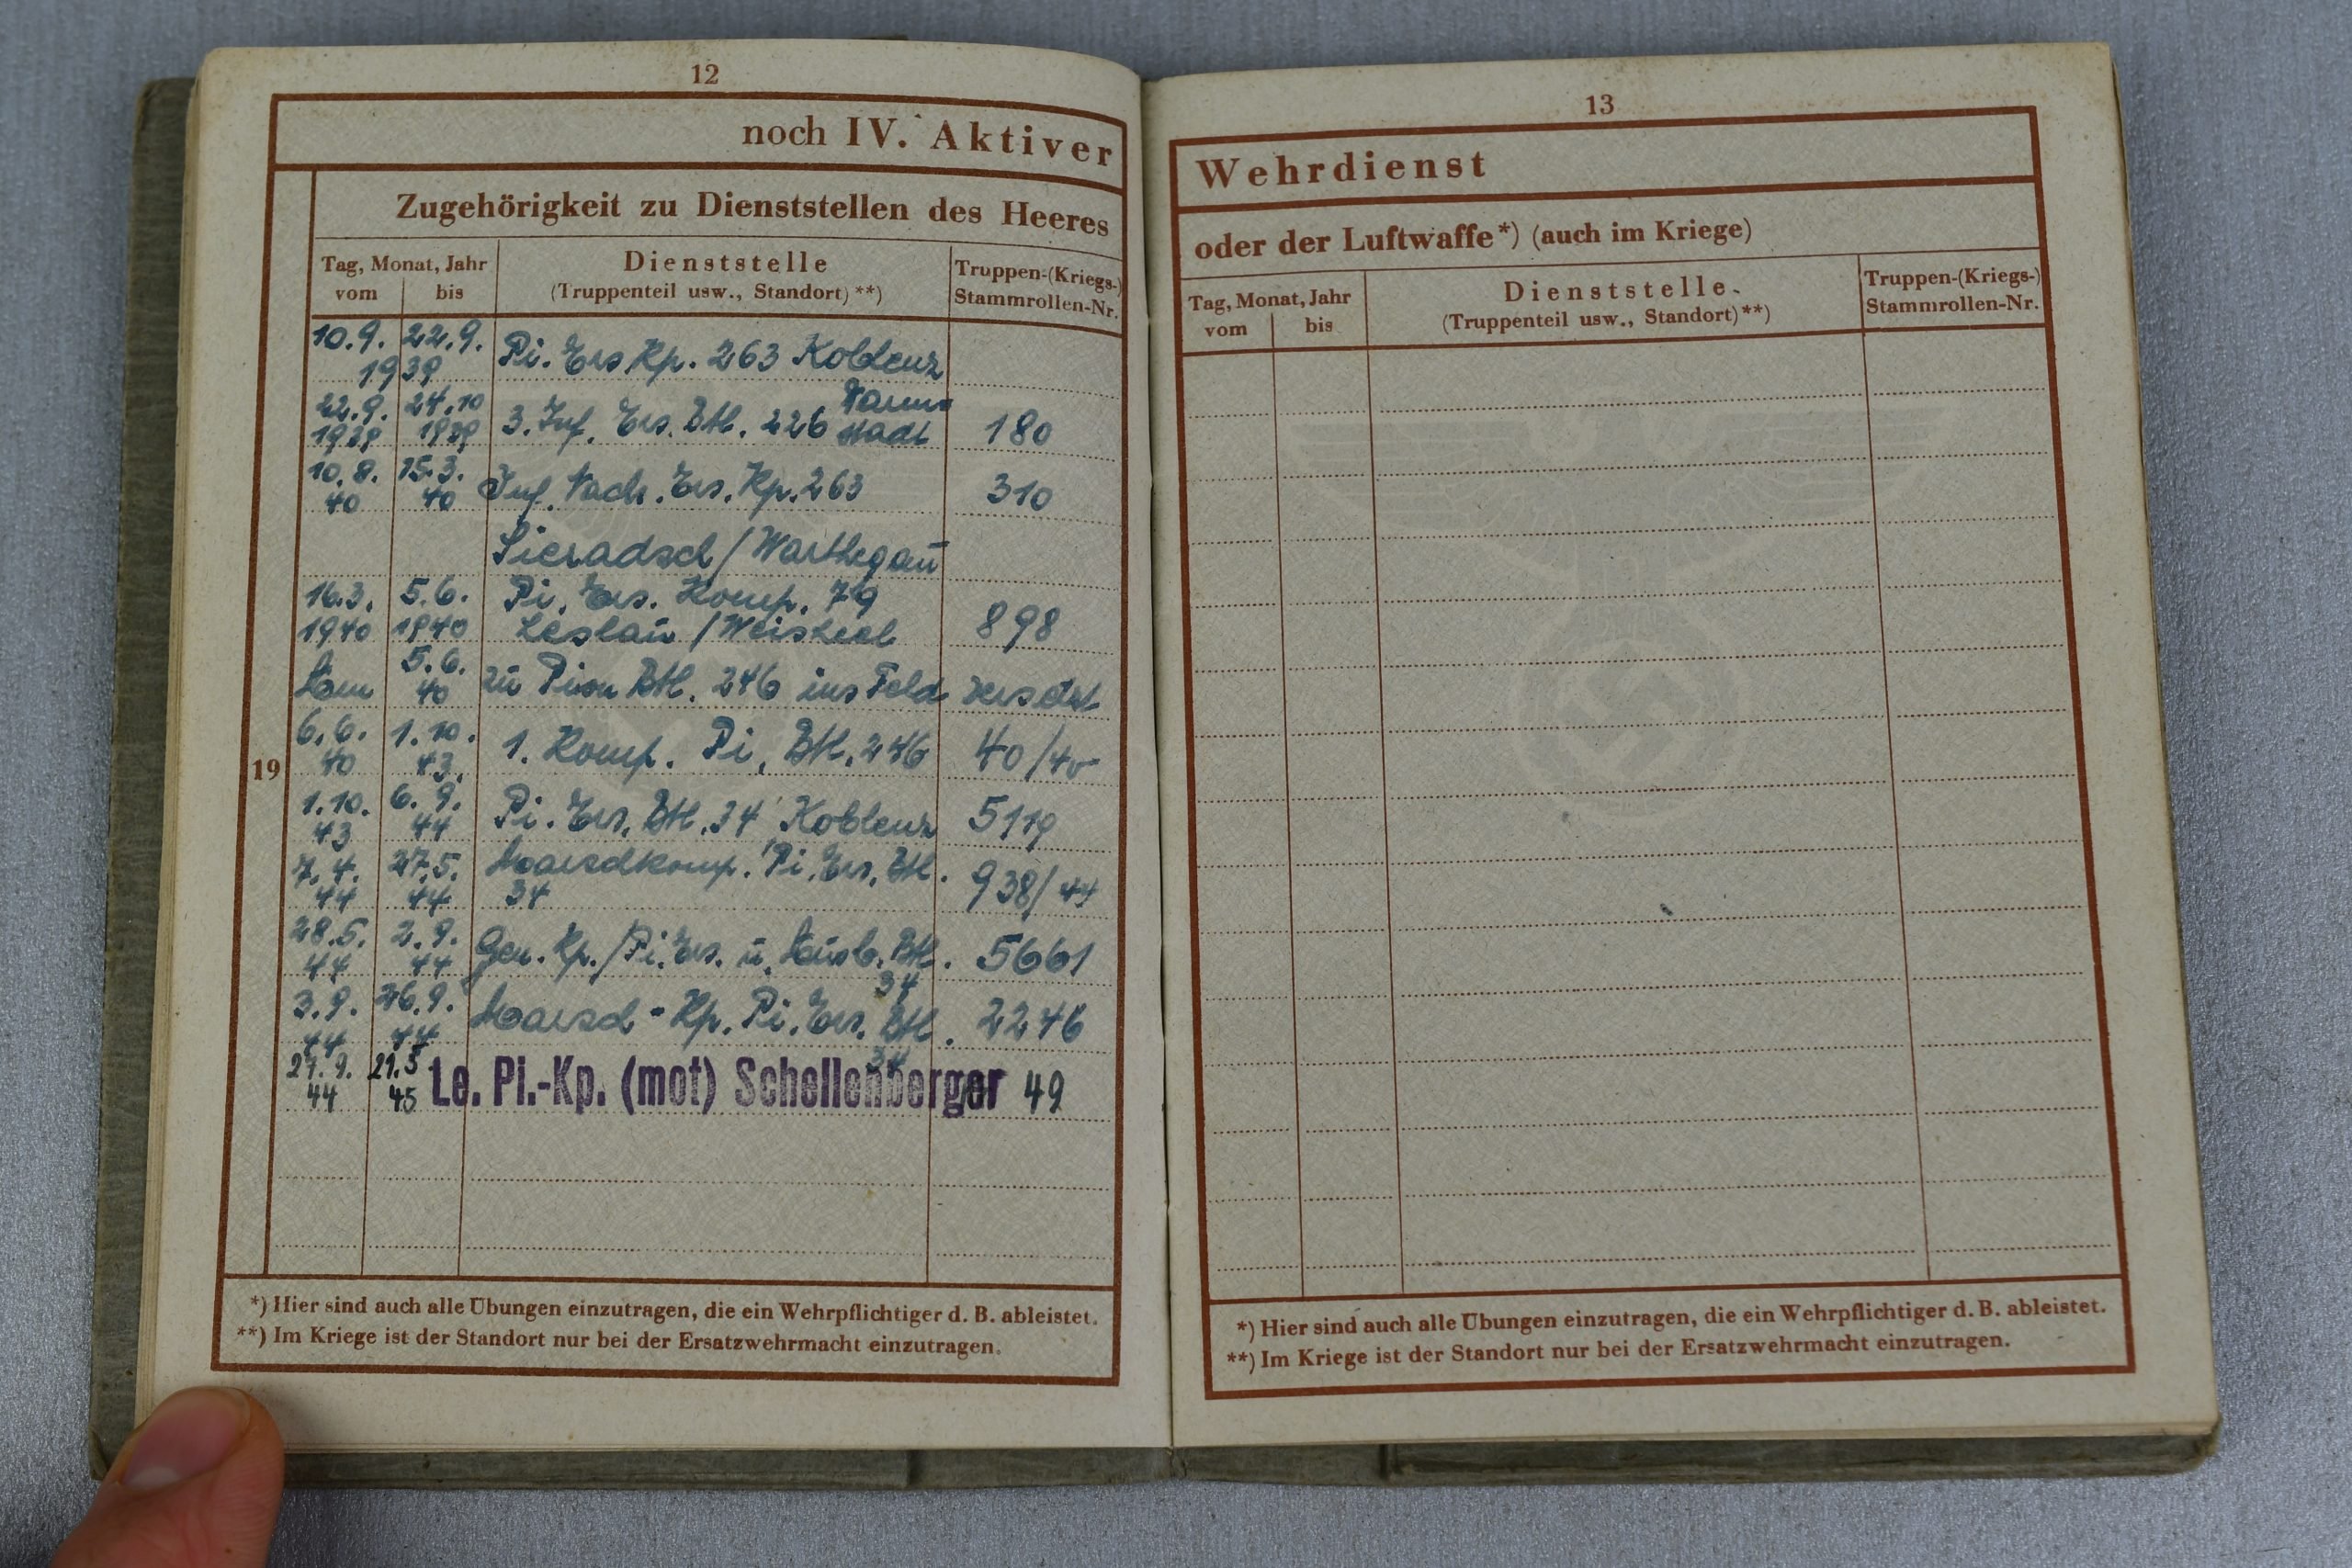 12
noch IV. Aktiver
Zugehörigkeit zu Dienststellen des Heeres
Tag, Monat, Jahr
vom bis
Dienststelle
(Truppenteil usw., Standort)**)
Truppen-(Kriegs-)
Stammrollen-Nr.
10.9. 22.9.
1939
Pi. Ers. Kp. 263 Koblenz
22.9. 24.10
1939 1939
3. Inf. Ers. Btl. 226
stadt
180
15.3.
40 40
Inf. Nach. Ers. Kp. 263
310
Sieradsch / Warthegau
16.3. 5.6.
1940 1940
Pi. Ers. Komp. 79
Leslau /
898
Am 5.6.
40
zu Pion Btl. 246 ins Feld versetzt
19
6.6. 1.10.
40 43.
1. Komp. Pi. Btl. 246
1.10. 6.
43 44
Pi. Ers. Btl. 34 Koblenz
5119
7.4. 27.5.
44 44
Marschkomp. Pi. Ers. Btl.
34
938/44
28.5. 2.9.
44 44
Gen. Kp./Pi. Ers. u. Ausb. Btl.
34
5661
3.9. 26.9.
44 44
Marsch-Kp. Pi. Ers. Btl.
34
2246
27.9.
44 45
Le. Pi.-Kp. (mot) Schellenberger
49
*) Hier sind auch alle Übungen einzutragen, die ein Wehrpflichtiger d. B. ableistet.
**) Im Kriege ist der Standort nur bei der Ersatzwehrmacht einzutragen.
13
Wehrdienst
oder der Luftwaffe*) (auch im Kriege)
Tag, Monat, Jahr
vom bis
Dienststelle
(Truppenteil usw., Standort)**)
Truppen-(Kriegs-)
Stammrollen-Nr.
*) Hier sind auch alle Übungen einzutragen, die ein Wehrpflichtiger d. B. ableistet.
**) Im Kriege ist der Standort nur bei der Ersatzwehrmacht einzutragen.